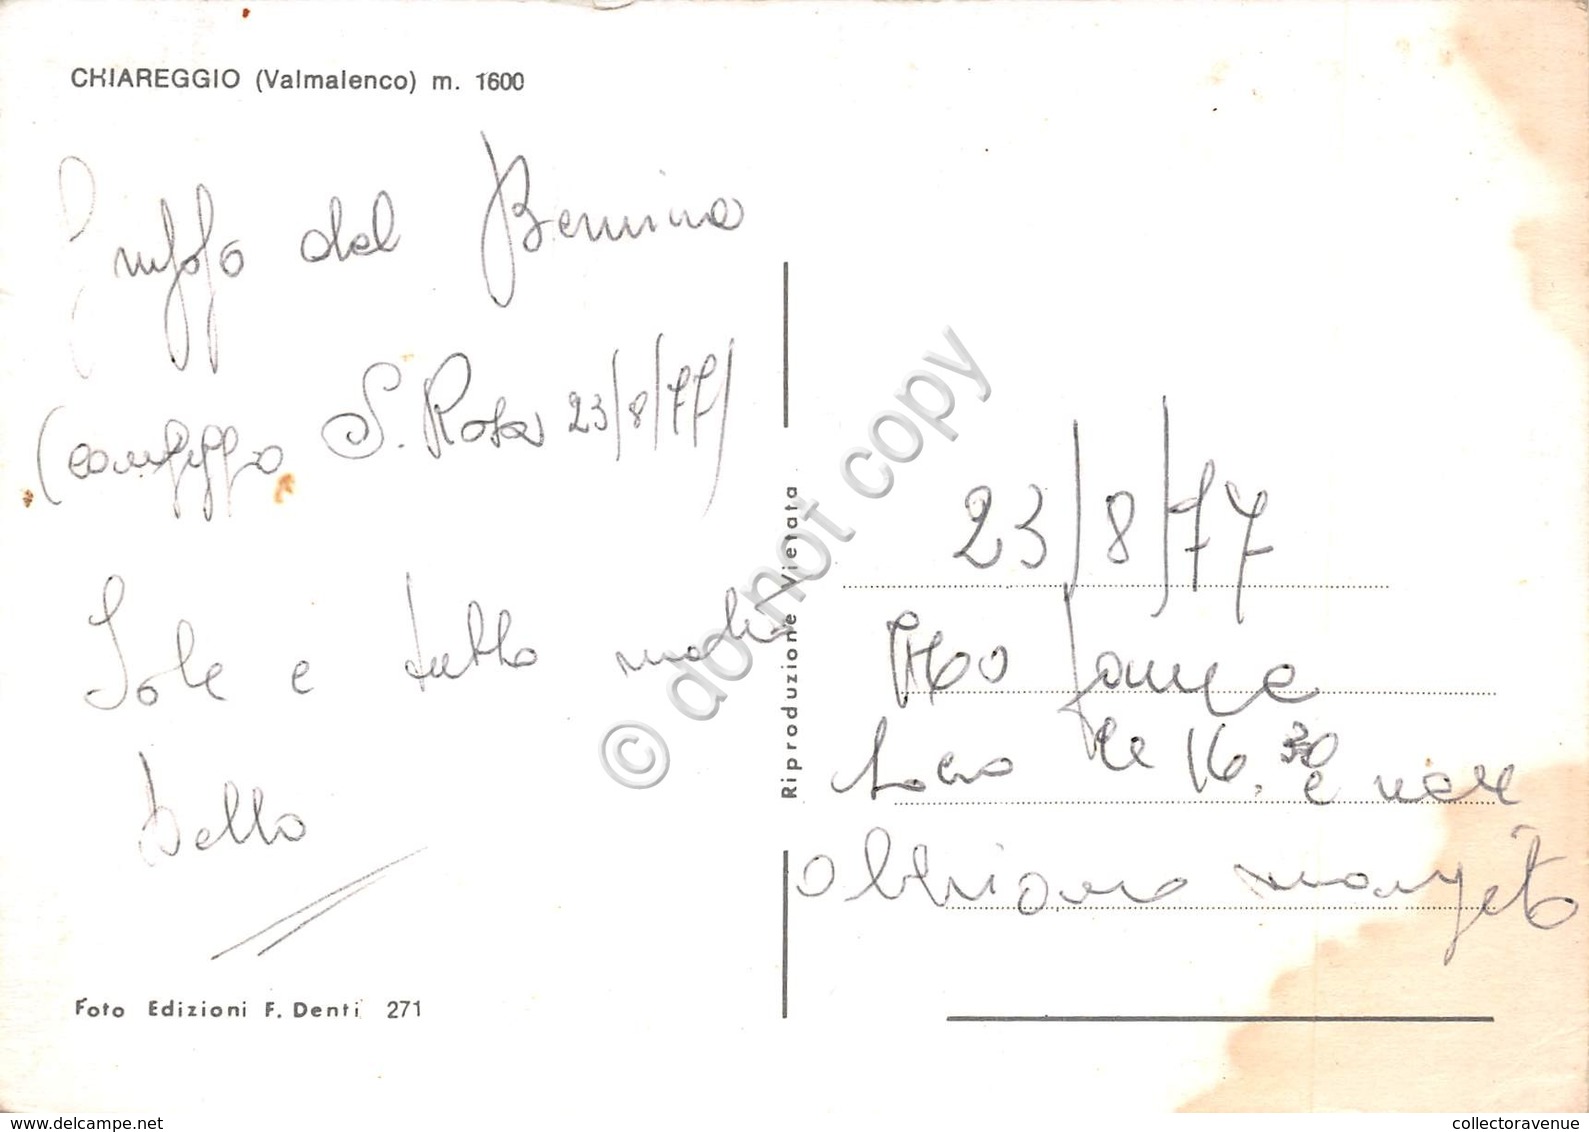 CHIAREGGIO (Valmalenco) m. 1600
Gruppo del Bernina
(campeggio S. Rosa 23/8/77)
Sole e tutto molto
bello
Foto Edizioni F. Denti 271
Riproduzione Vietata
© do not copy
23/8/77
fame
sono le 16.30 e non
abbiamo mangiato
delcampe.net
collectoravenue